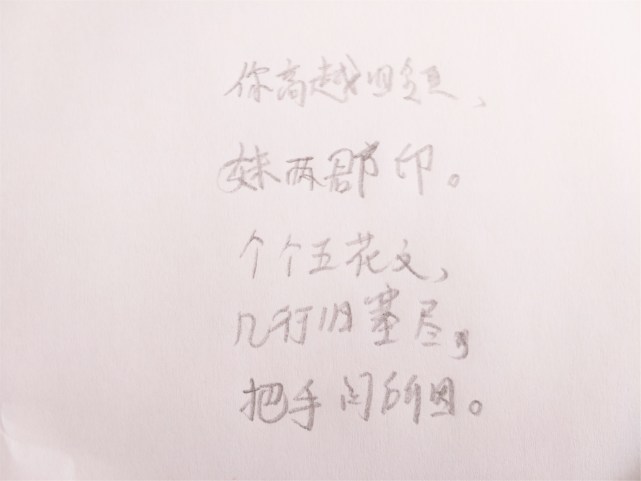 你高越旧领、
妹两郡印。
个个五花文，
几行旧塞尽，
把手问所因。